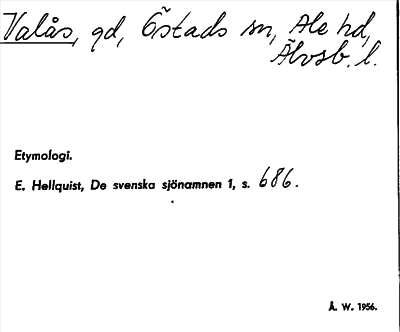 Valås, gd, Östads sn, Ale hd,
Älvsb. l.
Etymologi.
E. Hellquist, De svenska sjönamnen 1, s. 686.
Å. W. 1956.